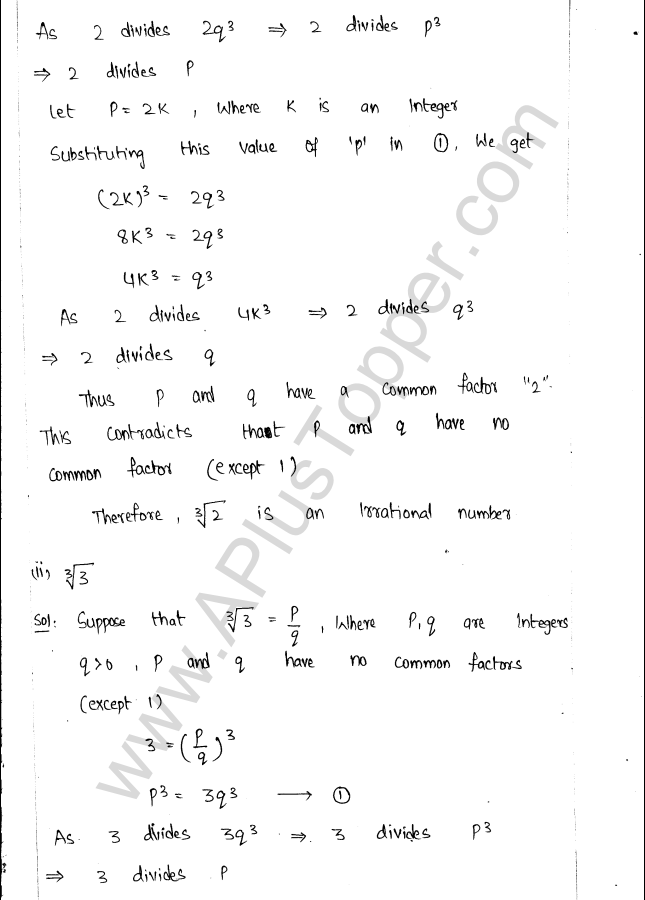 As 2 divides 2q³ ⇒ 2 divides p³
⇒ 2 divides P
Let P = 2K , Where K is an Integer
Substituting this value of 'p' in ①, We get
(2K)³ = 2q³
8K³ = 2q³
4K³ = q³
As 2 divides 4K³ ⇒ 2 divides q³
⇒ 2 divides q
Thus p and q have a common factor "2".
This contradicts that p and q have no
common factor (except 1)
Therefore, ∛2 is an Irrational number
(ii) ∛3
Sol: Suppose that ∛3 = P/q , Where P, q are Integers
q>0 , P and q have no common factors
(except 1)
3 = (P/q)³
P³ = 3q³ ⟶ ①
As 3 divides 3q³ ⇒ 3 divides P³
⇒ 3 divides P
www.APlusTopper.com